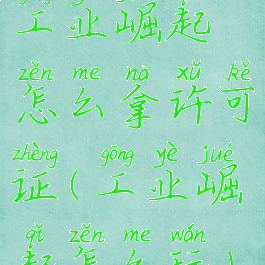 工业崛起
zěn me ná xǔ kě
怎么拿许可
zhèng gōng yè jué
证(工业崛
qǐ zěn me wán
起怎么玩)